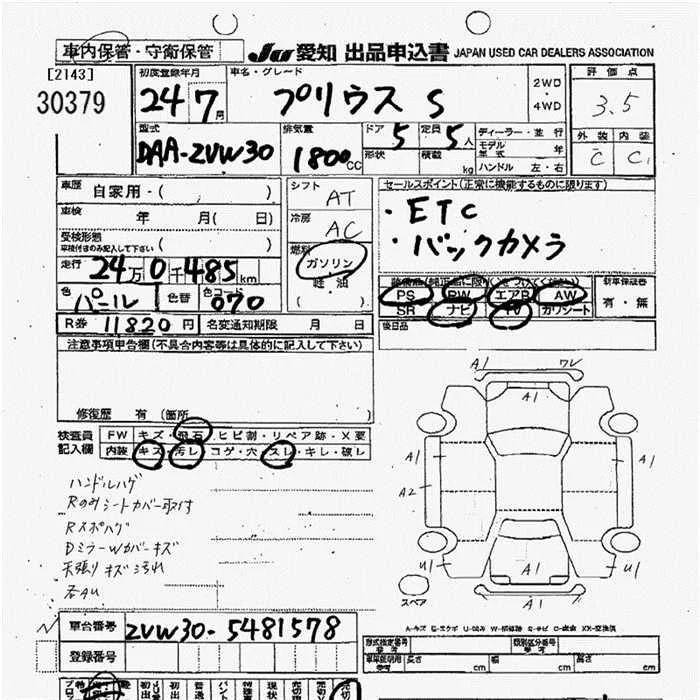 車内保管・守衛保管 JU 愛知 出品申込書 JAPAN USED CAR DEALERS ASSOCIATION
[2143]
30379
初度登録年月 車名・グレード 2WD・4WD 評価点
24 7月 プリウス S 3.5
型式 排気量 ドア 定員 ディーラー・並行 外装 内装
DAA-ZVW30 1800cc 5 5人 モデル年式 年 C C
形状 積載 kg ハンドル 左・右
車歴 自家用・( ) シフト AT セールスポイント(正常に機能するものに限ります)
車検 年 月( 日) 冷房 AC ・ETC
受検形態 ( ) ・バックカメラ
車検付きのみ記入して下さい
燃料 ガソリン
軽・油
( )
走行 24万0千485km
色 パール 色替 色コード 070
PS PW エアB AW 新車保証書
SR ナビ TV カワシート 有・無
R券 11820円 名変通知期限 月 日 後日品
注意事項申告欄(不具合内容等は具体的に記入して下さい)
修復歴 有 (箇所 )
検査員記入欄 FW キズ・飛石・ヒビ割・リペア跡・X要
内装 キズ・汚レ・コゲ・穴・スレ・キレ・破レ
ハンドルハゲ
Rのみシートカバー取付
Rスポハゲ
DミラーWカバーキズ
天張りキズ汚れ
A1 ワレ
A1 A1
A2
U1 A1 U1
A1
スペア
車台番号 ZVW30-5481578
登録番号
型式指定番号 類別区分番号
長さ cm 幅 cm 高さ cm